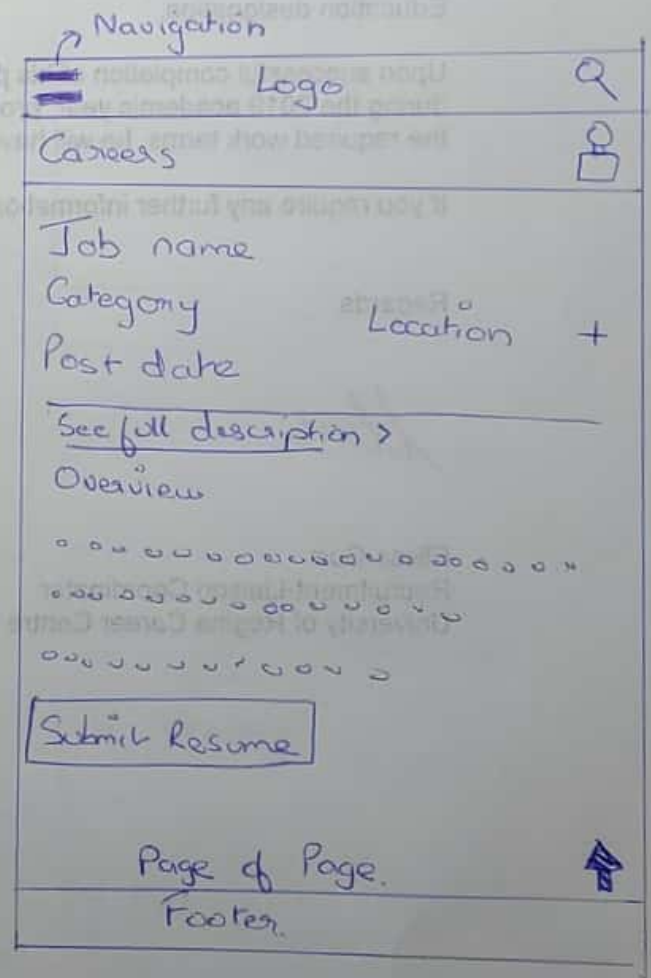 Navigation
Logo
Careers
Job name
Category
Location +
Post date
See full description >
Overview
Submit Resume
Page of Page.
Footer.